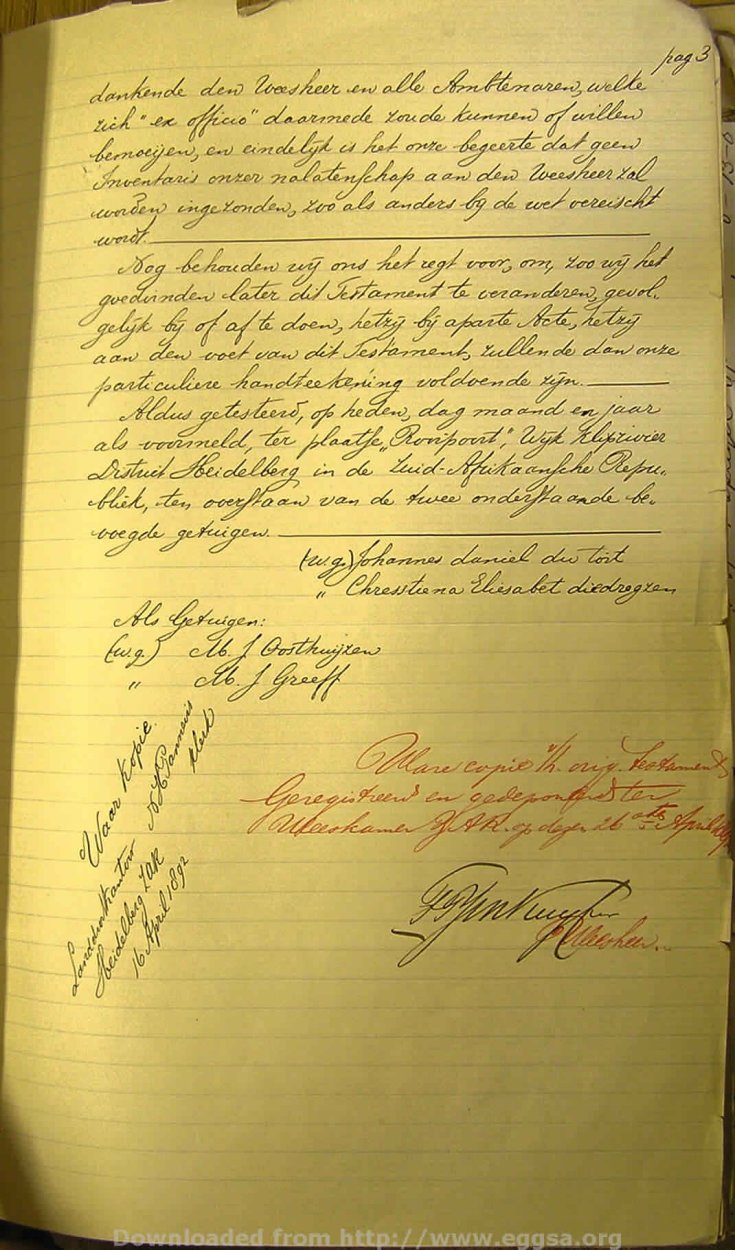 pag 3
dankende den Weesheer en alle Ambtenaren, welke
zich "ex officio" daarmede zoude kunnen of willen
bemoeijen, en eindelijk is het onze begeerte dat geen
Inventaris onzer nalatenschap aan den Weesheer zal
worden ingezonden, zoo als anders bij de wet vereischt
wordt.
Nog behouden wij ons het regt voor, om, zoo wij het
goedvinden later dit Testament te veranderen, gevol-
gelijk bij of af te doen, hetzij bij aparte Acte, hetzij
aan den voet van dit Testament, zullende dan onze
particuliere handteekening voldoende zijn.
Aldus getesteerd, op heden, dag maand en jaar
als voormeld, ter plaatse, "Rooipoort", Wijk Kliprivier
District Heidelberg in de Zuid-Afrikaansche Repu-
bliek, ten overstaan van de twee onderstaande be-
voegde getuigen.
(w.g.) Johannes daniel du toit
" Chresstiena Eliesabet diedregzen
Als Getuigen:
(w.g.) M. J Oosthuijzen
" M. J Greeff
Waar Kopie.
Klerk
Landdrostkantoor
Heidelberg ZAR
16 April 1892
Ware copie v/h. orig. Testament
Geregistreerd en gedeponeerd ter
Weeskamer Z.A.R. op dezen 26 sten April
Weesheer.
Downloaded from http://www.eggsa.org